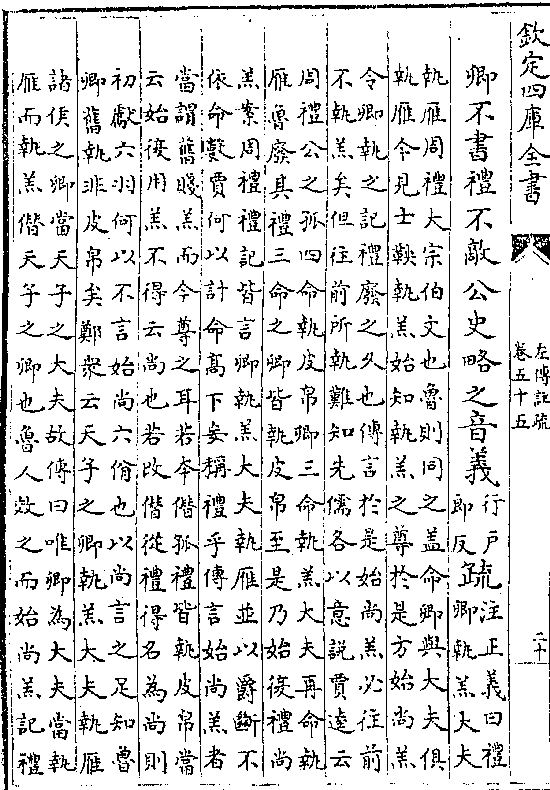 欽定四庫全書
左傳註疏
卷五十五
二十
卿不書禮不敵公史略之音義
行戸
即反
疏
注正義曰禮
卿執羔大夫
執雁周禮大宗伯文也魯則同之盖命卿與大夫俱
執雁今見士鞅執羔始知執羔之尊於是方始尚羔
令卿執之記禮廢之久也傳言於是始尚羔必往前
不執羔矣但往前所執難知先儒各以意説賈逵云
周禮公之孤四命執皮帛卿三命執羔大夫再命執
雁魯廢其禮三命之卿皆執皮帛至是乃始復禮尚
羔案周禮禮記皆言卿執羔大夫執雁並以爵斷不
依命數賈何以計命高下妄稱禮乎傳言始尚羔者
當謂舊賤羔而今尊之耳若本僣孤禮皆執皮帛當
云始復用羔不得云尚也若改僣從禮得名為尚則
初獻六羽何以不言始尚六佾也以尚言之足知魯
卿舊執非皮帛矣鄭衆云天子之卿執羔大夫執雁
諸侯之卿當天子之大夫故傳曰唯卿為大夫當執
雁而執羔僣天子之卿也魯人效之而始尚羔記禮